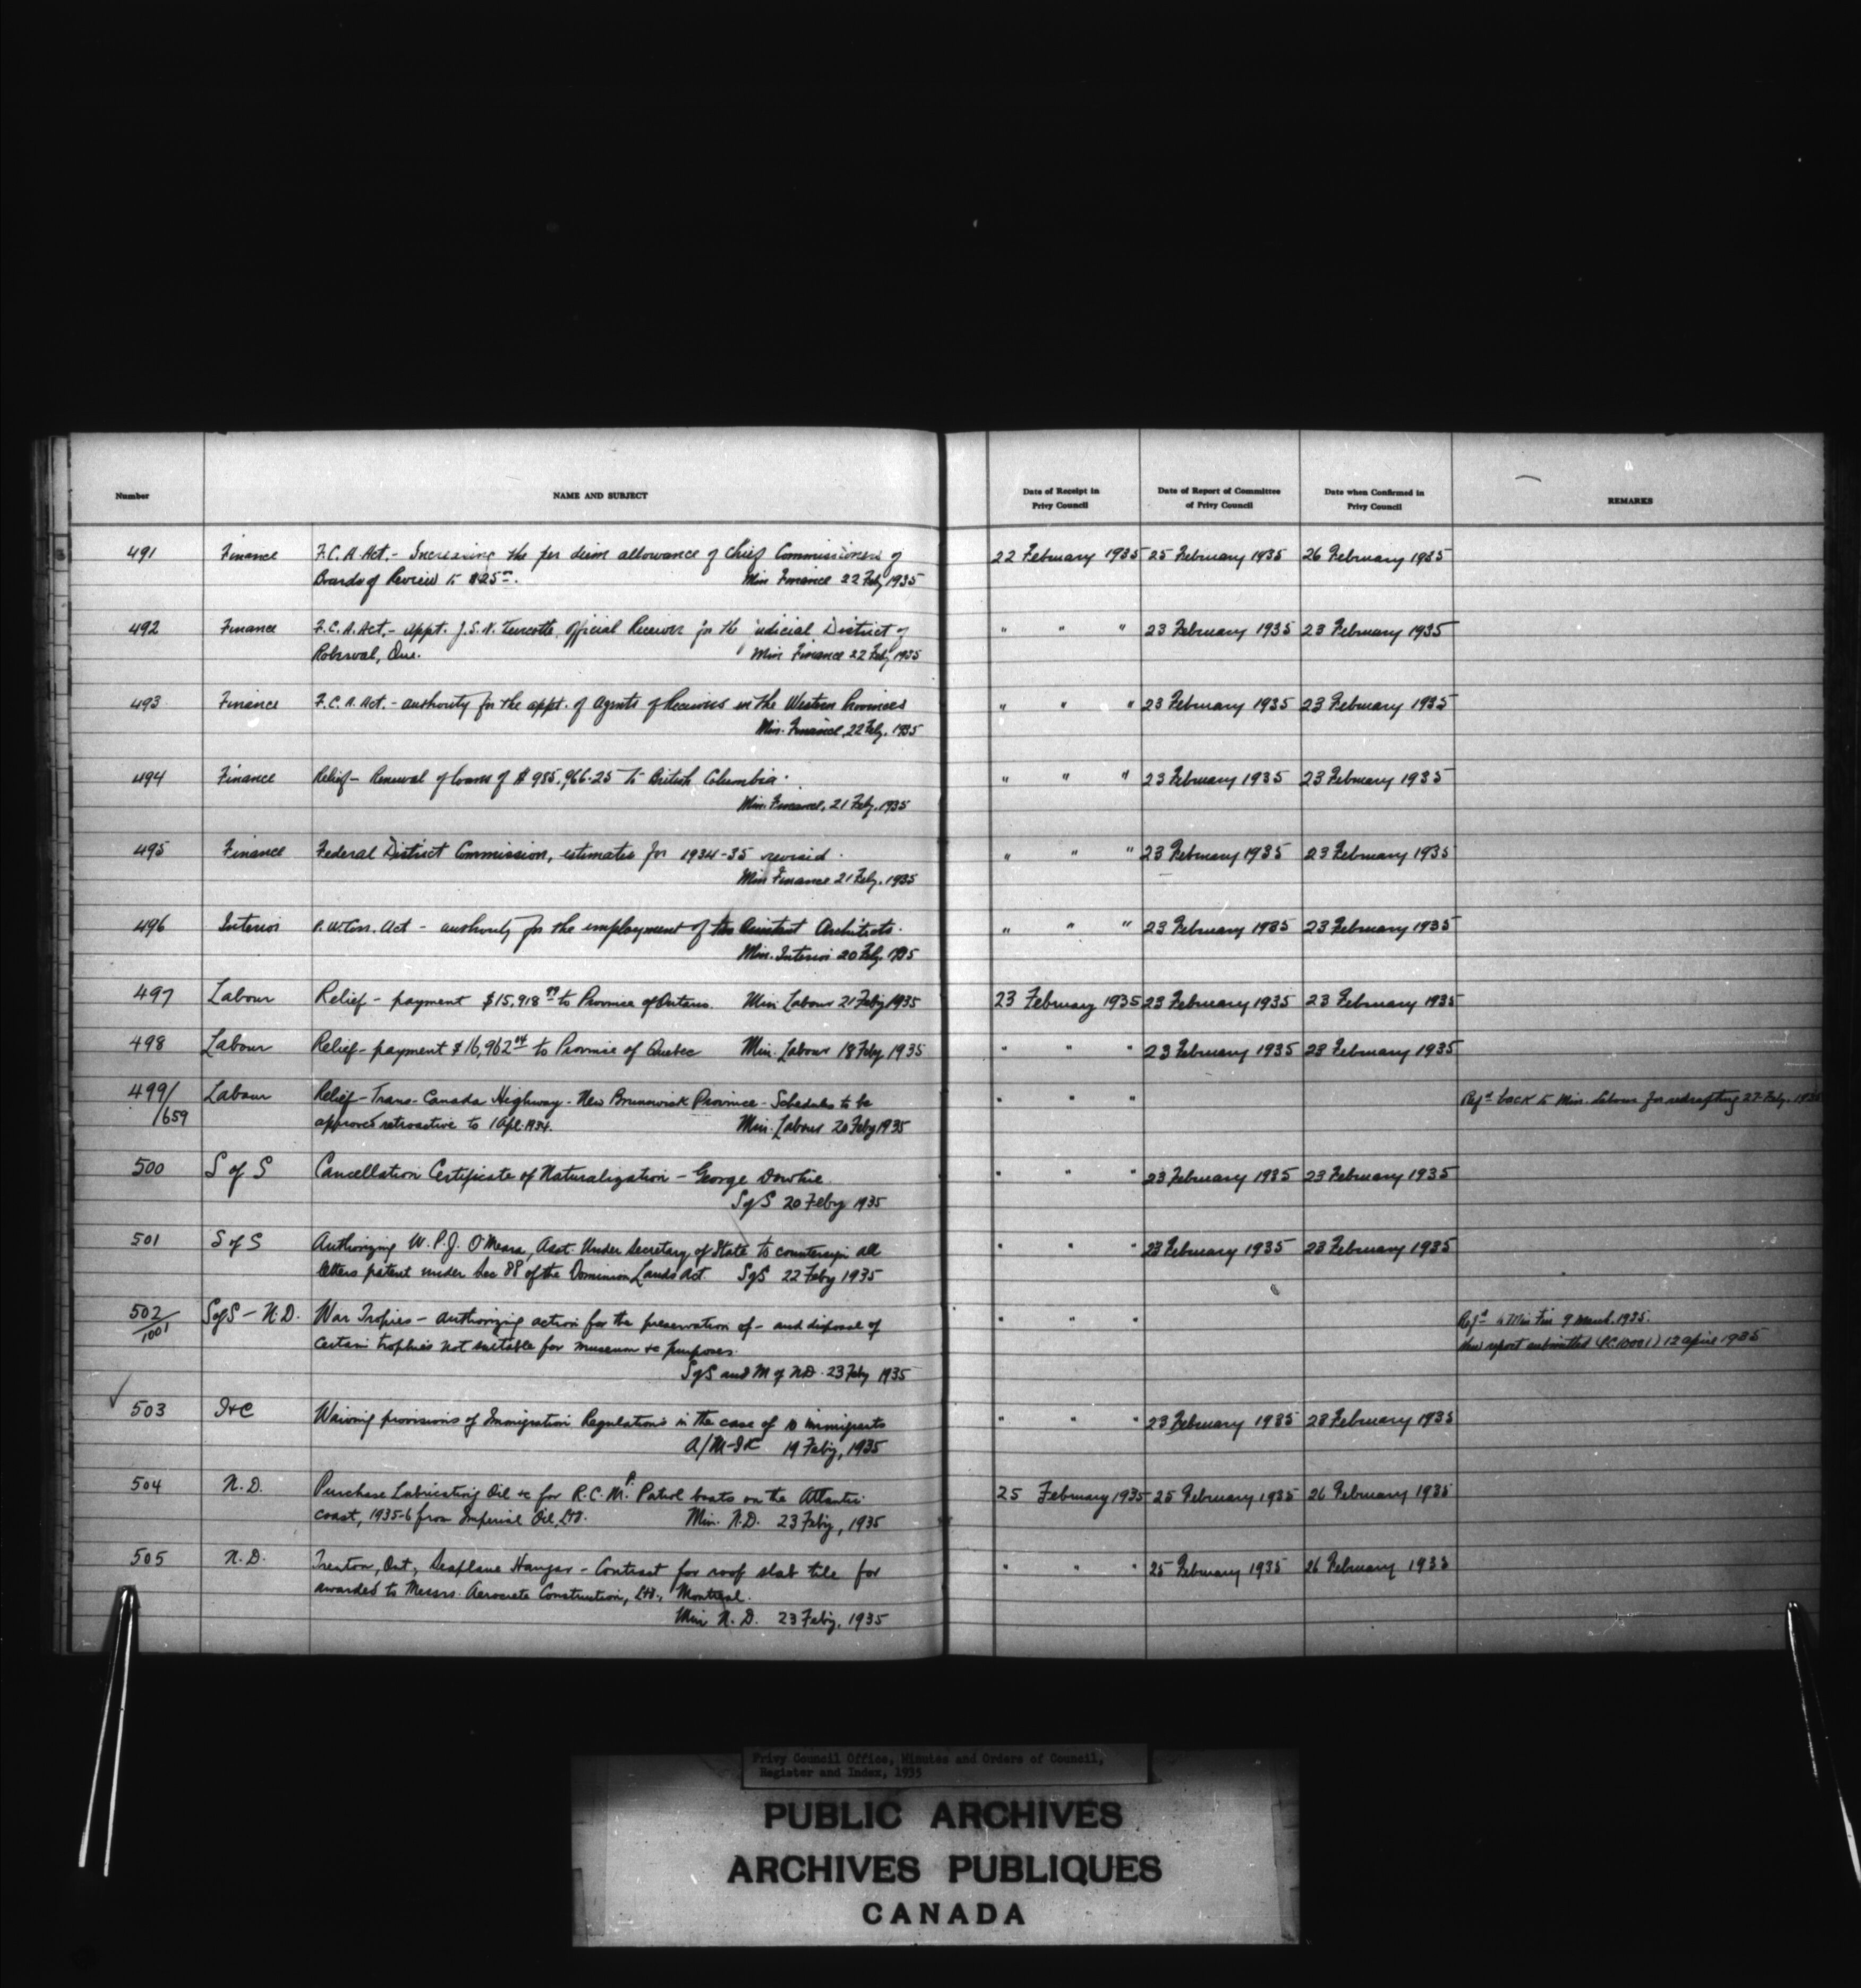 Number NAME AND SUBJECT Date of Receipt in Privy Council Date of Report of Committee of Privy Council Date when Confirmed in Privy Council REMARKS
491 Finance F.C.A. Act.- Increasing the per diem allowance of Chief Commissioners of 22 February 1935 25 February 1935 26 February 1935
Boards of Review to $25 Min Finance 22 Feby 1935
492 Finance F.C.A. Act.- appt. J.S.N. Turcotte, Official Receiver for the judicial District of " " " 23 February 1935 23 February 1935
Roberval, Que. Min Finance 22 Feby 1935
493 Finance F.C.A. Act.- authority for the appt. of Agents of Receivers in the Western Provinces " " " 23 February 1935 23 February 1935
Min. Finance, 22 Feby. 1935
494 Finance Relief- Renewal of loans of $985,966.25 to British Columbia. " " " 23 February 1935 23 February 1935
Min. Finance, 21 Feby. 1935
495 Finance Federal District Commission, estimates for 1934-35 revised. " " " 23 February 1935 23 February 1935
Min Finance 21 Feby. 1935
496 Interior P.W. Con. Act - authority for the employment of Assistant Architects. " " " 23 February 1935 23 February 1935
Min. Interior 20 Feby. 1935
497 Labour Relief - payment $15,918 to Province of Ontario. Min Labour 21 Feby 1935 23 February 1935 23 February 1935 23 February 1935
498 Labour Relief- payment $16,962.04 to Province of Quebec Min. Labour 18 Feby 1935 " " " 23 February 1935 23 February 1935
499/659 Labour Relief- Trans-Canada Highway - New Brunswick Province - Schedules to be " " " Refd back to Min. Labour for redrafting 27 Feby. 1935
approved retroactive to 1 Apl. 1934. Min. Labour 20 Feby 1935
500 S of S Cancellation Certificate of Naturalization - George Dowhie. " " " 23 February 1935 23 February 1935
S of S 20 Feby 1935
501 S of S Authorizing W.P.J. O'Meara, Asst. Under Secretary of State to countersign all " " " 23 February 1935 23 February 1935
letters patent under Sec 88 of the Dominion Lands Act. S of S 22 Feby 1935
502/1001 S of S - N.D. War Tropies - Authorizing action for the preservation of - and disposal of " " " Refd to Min Fin 9 March 1935.
certain trophies not suitable for museum &c purposes. New report submitted (P.C. 1001) 12 April 1935
S of S and M of N.D. 23 Feby 1935
503 I&C Waiving provisions of Immigration Regulations in the case of 10 immigrants " " " 23 February 1935 23 February 1935
A/M-I&C 19 Feby, 1935
504 N.D. Purchase Lubricating Oil &c for R.C.M.P. Patrol boats on the Atlantic 25 February 1935 25 February 1935 26 February 1935
coast, 1935-6 from Imperial Oil, Ltd. Min. N.D. 23 Feby, 1935
505 N.D. Trenton, Ont., Seaplane Hangar - Contract for roof slab tile for " " " 25 February 1935 26 February 1935
awarded to Messrs. Aerocrete Construction, Ltd., Montreal.
Min N.D. 23 Feby. 1935
Privy Council Office, Minutes and Orders of Council,
Register and Index, 1935
PUBLIC ARCHIVES
ARCHIVES PUBLIQUES
CANADA